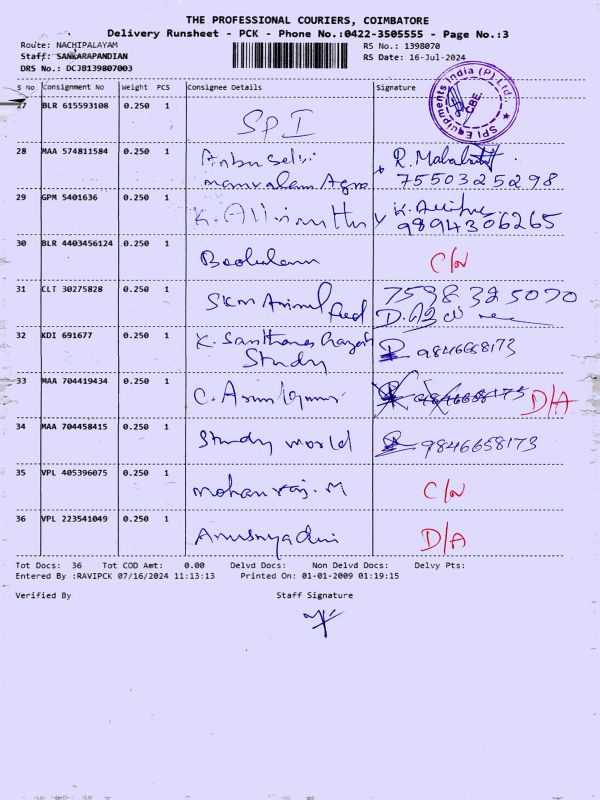 THE PROFESSIONAL COURIERS, COIMBATORE
Delivery Runsheet - PCK - Phone No.:0422-3505555 - Page No.:3
Route: NACHIPALAYAM RS No.: 1398070
Staff: SANKARAPANDIAN RS Date: 16-Jul-2024
DRS No.: DCJB139807003
S No Consignment No Weight PCS Consignee Details Signature
SPI Equipments India (P) Ltd. CBE.
27 BLR 615593108 0.250 1 SPI
28 MAA 574811584 0.250 1 Anbu Selvi R. Mahalakshmi
manvalam Agro 7550325298
29 GPM 5401636 0.250 1 K. Alimuthu K.
9894306265
30 BLR 4403456124 0.250 1 C/N
31 CLT 30275828 0.250 1 SKM Animal feed 7598325070
32 KDI 691677 0.250 1 K. Santhana 9846658173
Study
33 MAA 704419434 0.250 1 C. Arunkumar 9846668173 D/A
34 MAA 704458415 0.250 1 Study world 9846658173
35 VPL 405396075 0.250 1 mohanraj. M C/N
36 VPL 223541049 0.250 1 D/A
Tot Docs: 36 Tot COD Amt: 0.00 Delvd Docs: Non Delvd Docs: Delvy Pts:
Entered By :RAVIPCK 07/16/2024 11:13:13 Printed On: 01-01-2009 01:19:15
Verified By Staff Signature